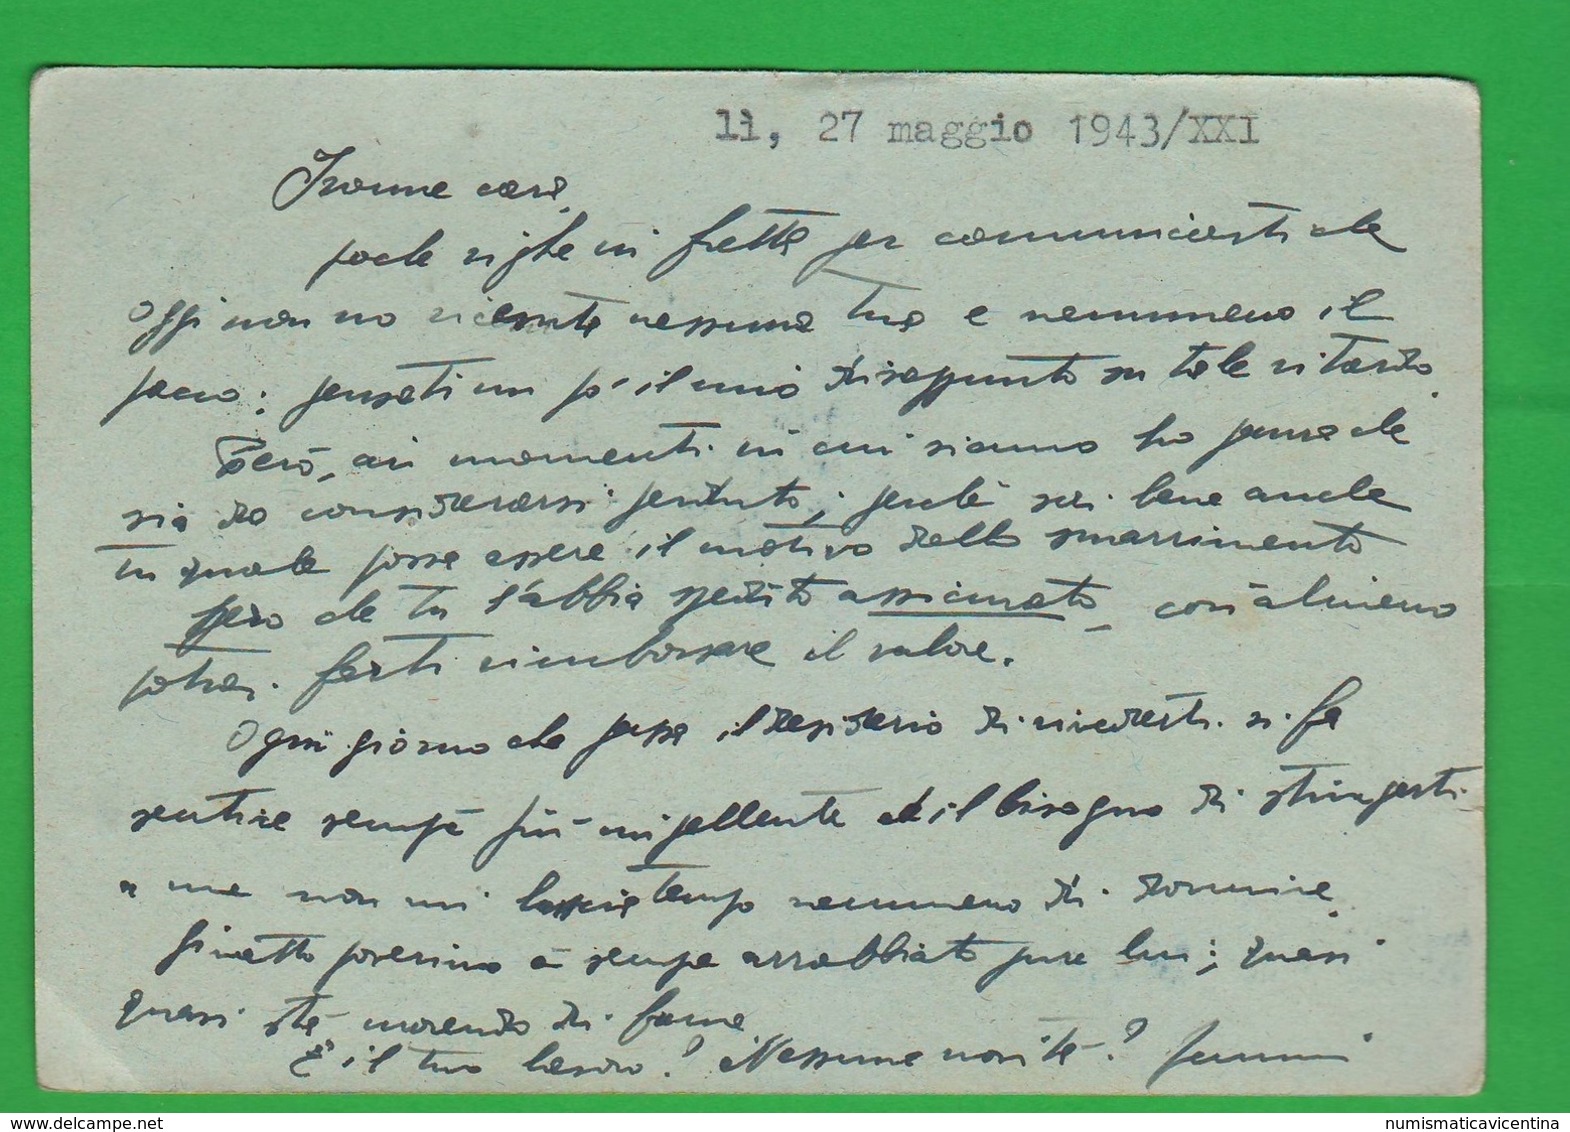 lì, 27 maggio 1943/XXI
Ivonne cara,
poche righe in fretta per comunicarti che
oggi non ho ricevuta nessuna tua e nemmeno il
pacco: pensati un pò il mio disappunto su tale ritardo.
Però, ai momenti in cui siamo ho paura che
sia da considerarsi perduto; perchè sai bene anche
tu quale possa essere il motivo dello smarrimento
spero che tu l'abbia spedito assicurato, così almeno
potrai farti rimborsare il valore.
Ogni giorno che passa il desiderio di rivederti si fa
sentire sempre più impellente ed il bisogno di stringerti
a me non mi lascia tempo nemmeno di dormire.
poverino è sempre arrabbiato pure lui; quasi
quasi stà morendo di fame.
E il tuo lavoro? Nessuna novità?
numismaticavicentina